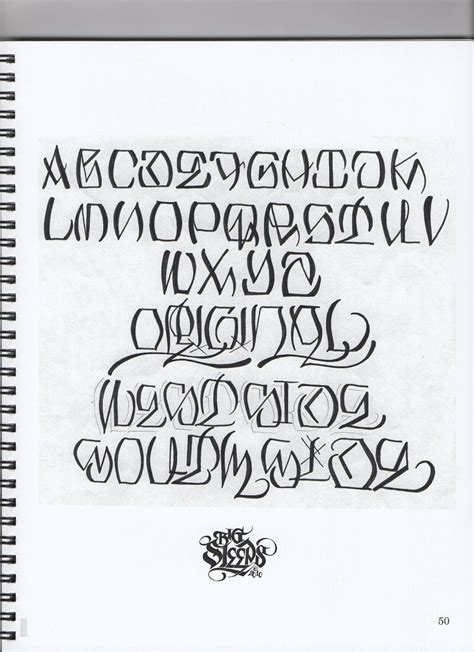 ABCDEFGHIJK
LMNOPQRSTUV
WXYZ
ORIGINAL
WESTSIDE
SOUTHSIDE
BIG
SLEEPS
©
2010
50